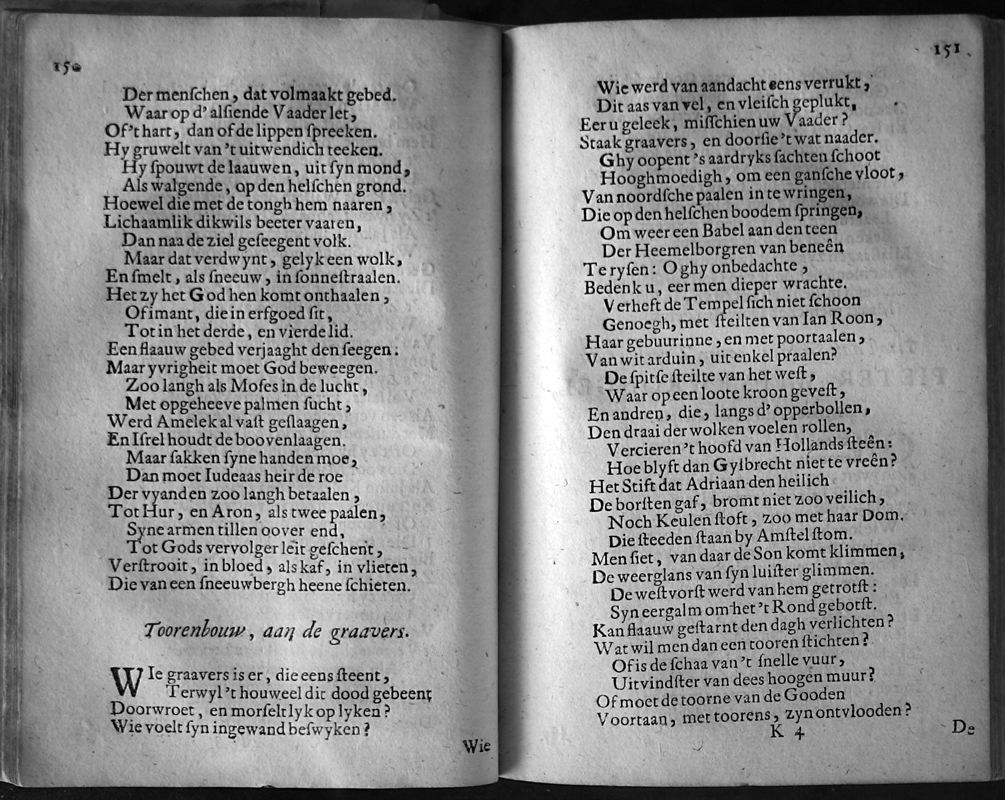 150
Der menſchen, dat volmaakt gebed.
Waar op d'alſiende Vaader let,
Of't hart, dan of de lippen ſpreeken.
Hy gruwelt van 't uitwendich teeken.
Hy ſpouwt de laauwen, uit ſyn mond,
Als walgende, op den helſchen grond.
Hoewel die met de tongh hem naaren,
Lichaamlik dikwils beeter vaaren,
Dan naa de ziel geſeegent volk.
Maar dat verdwynt, gelyk een wolk,
En ſmelt, als ſneeuw, in ſonneſtraalen.
Het zy het God hen komt onthaalen,
Of imant, die in erfgoed ſit,
Tot in het derde, en vierde lid.
Een flaauw gebed verjaaght den ſeegen:
Maar yvrigheit moet God beweegen.
Zoo langh als Moſes in de lucht,
Met opgeheeve palmen ſucht,
Werd Amelek al vaſt geſlaagen,
En Iſrel houdt de boovenlaagen.
Maar ſakken ſyne handen moe,
Dan moet Iudeaas heir de roe
Der vyanden zoo langh betaalen,
Tot Hur, en Aron, als twee paalen,
Syne armen tillen oover end,
Tot Gods vervolger leit geſchent,
Verſtrooit, in bloed, als kaf, in vlieten,
Die van een ſneeuwbergh heene ſchieten.
Toorenbouw, aan de graavers.
WIe graavers is er, die eens ſteent,
Terwyl 't houweel dit dood gebeent
Doorwroet, en morſelt lyk op lyken?
Wie voelt ſyn ingewand beſwyken?
Wie
151
Wie werd van aandacht eens verrukt,
Dit aas van vel, en vleiſch geplukt,
Eer u geleek, miſſchien uw Vaader?
Staak graavers, en doorſie 't wat naader.
Ghy oopent 's aardryks ſachten ſchoot
Hooghmoedigh, om een ganſche vloot,
Van noordſche paalen in te wringen,
Die op den helſchen boodem ſpringen,
Om weer een Babel aan den teen
Der Heemelborgren van beneên
Te ryſen: O ghy onbedachte,
Bedenk u, eer men dieper wrachte.
Verheft de Tempel ſich niet ſchoon
Genoegh, met ſteilten van Ian Roon,
Haar gebuurinne, en met poortaalen,
Van wit arduin, uit enkel praalen?
De ſpitſe ſteilte van het weſt,
Waar op een loote kroon geveſt,
En andren, die, langs d'opperbollen,
Den draai der wolken voelen rollen,
Vercieren 't hoofd van Hollands ſteên:
Hoe blyft dan Gyſbrecht niet te vreên?
Het Stift dat Adriaan den heilich
De borſten gaf, bromt niet zoo veilich,
Noch Keulen ſtoft, zoo met haar Dom.
Die ſteeden ſtaan by Amſtel ſtom.
Men ſiet, van daar de Son komt klimmen,
De weerglans van ſyn luiſter glimmen.
De weſtvorſt werd van hem getrotſt:
Syn eergalm om het 't Rond gebotſt.
Kan flaauw geſtarnt den dagh verlichten?
Wat wil men dan een tooren ſtichten?
Of is de ſchaa van 't ſnelle vuur,
Uitvindſter van dees hoogen muur?
Of moet de toorne van de Gooden
Voortaan, met toorens, zyn ontvlooden?
K 4
De